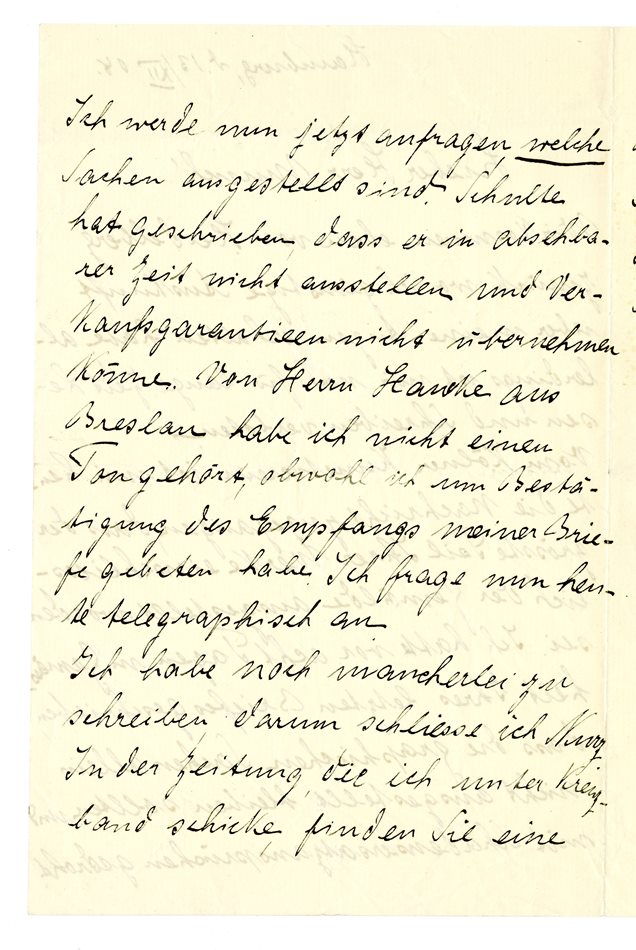 Ich werde nun jetzt anfragen, welche
Sachen ausgestellt sind. Schulte
hat geschrieben, dass er in absehba-
rer Zeit nicht ausstellen und Ver-
kaufsgarantieen nicht übernehmen
könne. Von Herrn Hancke aus
Breslau habe ich nicht einen
Ton gehört, obwohl ich um Bestä-
tigung des Empfangs meiner Brie-
fe gebeten habe. Ich frage nun heu-
te telegraphisch an.
Ich habe noch mancherlei zu
schreiben, darum schliesse ich kurz
In der Zeitung, die ich unter Kreuz-
band schicke, finden Sie eine